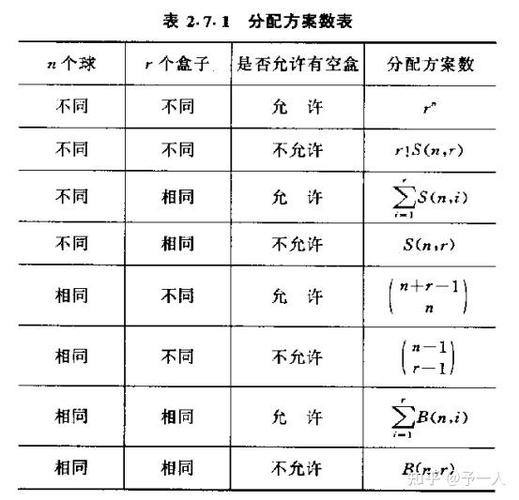 表 2·7·1 分配方案数表
n 个球 r 个盒子 是否允许有空盒 分配方案数
不同 不同 允 许 rⁿ
不同 不同 不允许 r!S(n,r)
不同 相同 允 许 \sum_{i=1}^{r} S(n,i)
不同 相同 不允许 S(n,r)
相同 不同 允 许 \binom{n+r-1}{n}
相同 不同 不允许 \binom{n-1}{r-1}
相同 相同 允 许 \sum_{i=1}^{r} B(n,i)
相同 相同 不允许 B(n,r)
知乎 @予一人